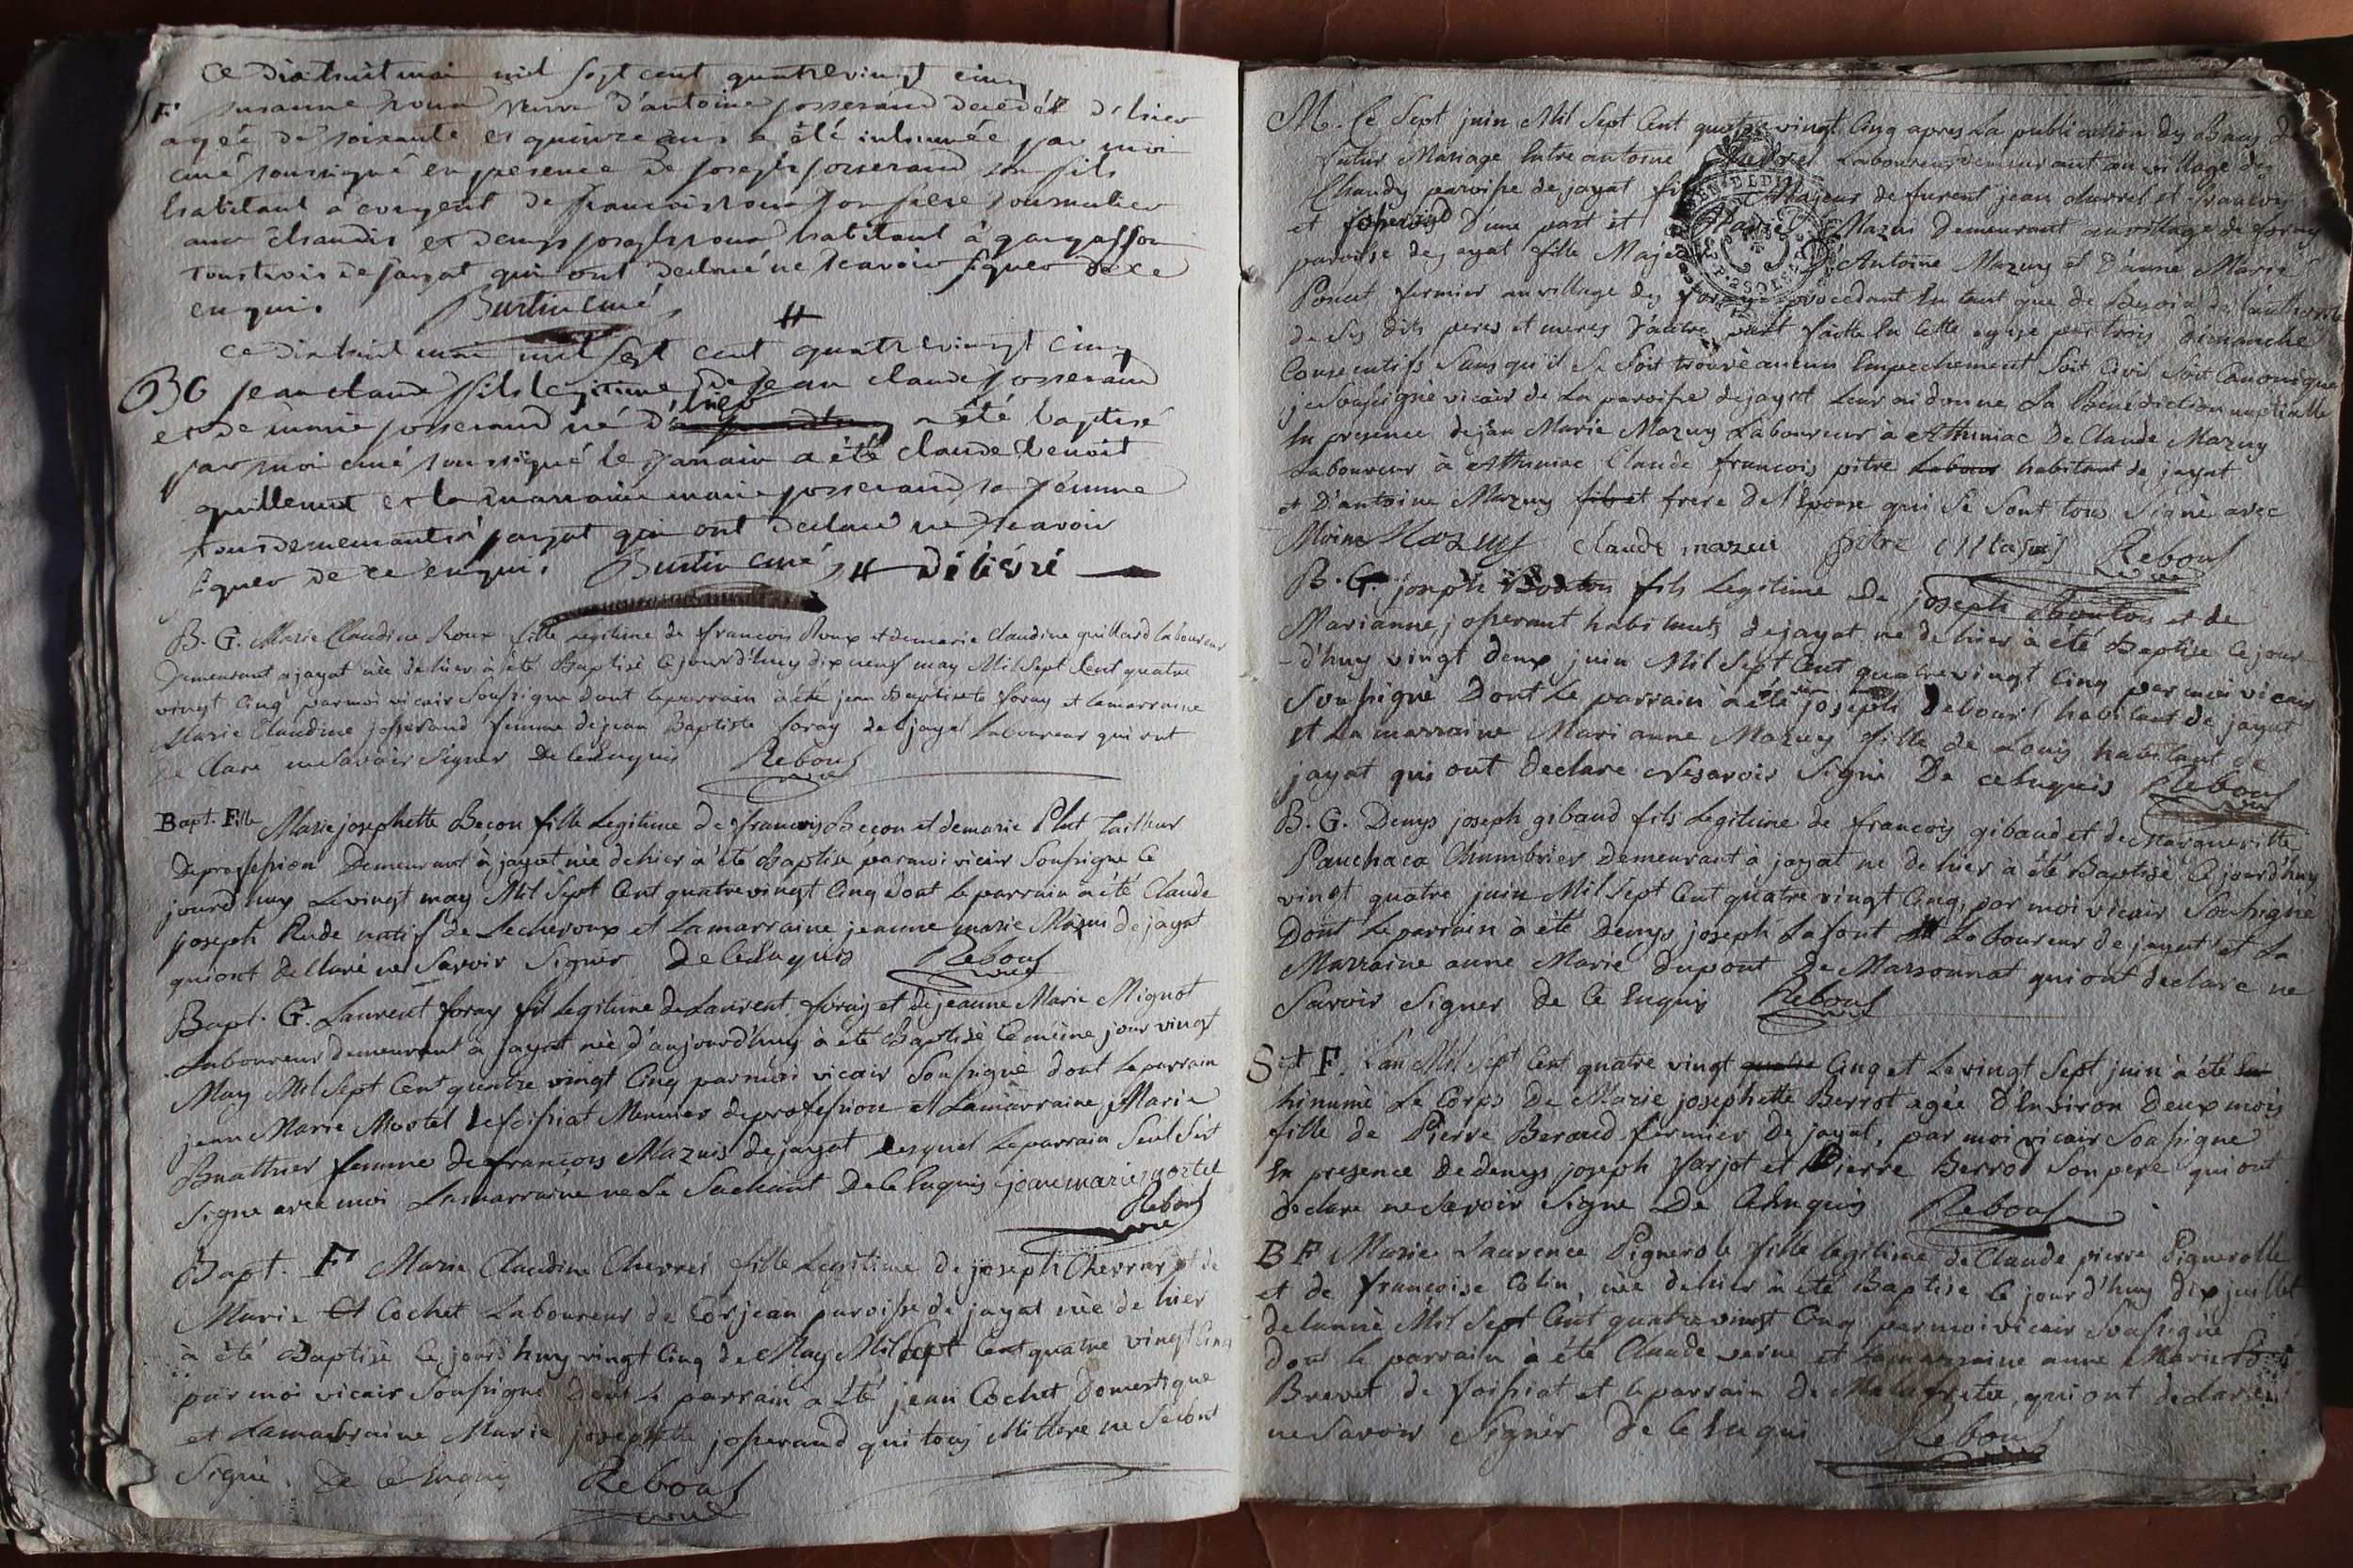 ce dixhuit mai mil sept cent quatrevingt cinq
F susanne roux veuve d'antoine josserand decedée d'hier
agée de soixante et quinze ans a été inhumée par moi
curé soussigné en presence de joseph josserand son fils
habitant a de francois roux son frere
aux chaudis et denys joseph roux habitant à
tous trois de jayat qui ont declaré ne scavoir signer de ce
enquis Burtin curé
ce dixhuit mai mil sept cent quatre vingt cinq
BG jean claude fils legitime de jean claude josserand
et de marie josserand né d'hier a été baptisé
par moi curé soussigné le parrain a été claude benoit
guillemot et la marraine marie josserand sa femme
tous demeurants à jayat qui ont declaré ne scavoir
signer de ce enquis Burtin curé délivré
B. G. Marie Claudine Roux fille Legitime de francois Roux et de marie claudine guillard laboureur
demeurant a jayat née de hier à été Baptisé Ce jourd'huy dix neuf may Mil Sept Cent quatre
vingt Cinq par moi vicair Soussigne dont le parrain à été jean Baptiste foray et la marraine
Marie Claudine josserand femme de jean Baptiste foray de jayat Laboureur qui ont
de Clare ne Savoir Signer De ce Enquis Rebouf
Bapt. Fille Marie josephette Becon fille Legitime de francois Becon et de marie Plut tailleur
de profession Demeurant à jayat née de hier à été Baptise par moi vicair Soussigne Ce
jourd'huy Le vingt may Mil Sept Cent quatre vingt Cinq dont le parrain à été Claude
joseph Rude natif de Lecheroux et La marraine jeanne marie Mazuis de jayat
qui ont declaré ne Savoir Signer De Ce Enquis Rebouf
Bapt. G. Laurent foray fil legitime de Laurent foray et de jeanne Marie Mignot
Laboureur demeurant à jayat né d'aujourd'huy à été Baptisé Ce même jour vingt
May Mil Sept Cent quatre vingt Cinq par moi vicair Soussigné dont Le parrain
jean Marie Mortel de foissiat Meunier de profession et La marraine Marie
Buathier femme de francois Mazuis de jayat Lesquel Le parrain Seul S'est
Signe avec moi La marraine ne Le Sachant De Ce Enquis jeanmarie mortel
Rebouf
Bapt. F Marie Claudine Chevrel fille Legitime de joseph Chevrel et de
Marie Cochet Laboureur de Corjean paroisse de jayat née de hier
à été Baptisé Ce jourd'huy vingt Cinq de May Mil Sept Cent quatre vingt Cinq
par moi vicair Soussigne dont le parrain à été jean Cochet Domestique
et La marraine Marie josephette josserand qui tous ne Se sont
Signé. De Ce Enquis Rebouf
M. Ce Sept juin Mil Sept Cent quatre vingt Cinq apres La publication des Bans de
futur Mariage Entre antoine Chevrel Laboureur demeurant au village des
Chaudy paroisse de jayat fils Majeur de furent jean chevrel et
et josserand d'une part et Marie Mazuis demeurant au village de foray
paroisse de jayat fille Majeure D'Antoine Mazuy et D'anne Marie
Poncet fermier au village des foray procedant En tant que de besoin de l'authorité
de Ses dits peres et meres d'autre part faitte En Cette eglise par trois Dimanche
Consecutifs Sans qu'il Se Soit trouvé aucun Empechement Soit Civil Soit Canonique
je Soussigné vicair de La paroisse de jayat Leur ai donne La Benediction nuptialle
En presence de jean Marie Mazuy Laboureur à Attiniac De Claude Mazuy
Laboureur à Attiniac Claude francois pitre Labour habitant de jayat
et D'antoine Mazuy fils et frere de l'Epouse qui Se Sont tous Signé avec
Moi Mazuy claude mazui pitre Rebouf
B. G. joseph Bouton fils Legitime De joseph Bouton et de
Marianne josserant habitants de jayat né de hier à été Baptise Ce jour
-d'huy vingt deux juin Mil Sept Cent quatre vingt Cinq par moi vicair
Soussigné Dont Le parrain à été joseph Debourt habitant de jayat
et La marraine Marianne Mazuy fille de Louis habitant de
jayat qui ont declare Ne savoir Signé De ce Enquis Rebouf
B. G. Denys joseph gibaud fils Legitime de francois gibaud et de Margueritte
Panchaca Chambrier demeurant à jayat ne de hier à été Baptisé Ce jourd'huy
vingt quatre juin Mil Sept Cent quatre vingt Cinq, par moi vicair Soussigné
Dont Le parrain à été Denys joseph Lafont Laboureur de jayat et La
Marraine anne Marie Dupont De Marsonnat qui ont declare ne
Savoir Signer De Ce Enquis Rebouf
Sept F. L'an Mil Sept Cent quatre vingt quatre Cinq et Le vingt Sept juin à été En
hinumé Le Corps De Marie josephette Berrot agée D'Environ Deux mois
fille de Pierre Beraud fermier de jayat, par moi vicair Soussigne
En presence De denys joseph farjot et Pierre Berrod Son pere qui ont
declare ne Savoir Signe De Ce Enquis Rebouf
B F Marie Laurence Pignerole fille legitime de Claude pierre Pignerolle
et de francoise Colin, née de hier à été Baptise Ce jour d'huy Dix juillet
de l'année Mil Sept Cent quatre vingt Cinq par moi vicair Soussigné
dont le parrain à été Claude verne et La marraine anne Marie
Brevet de foissiat et le parrain de Malafretaz, qui ont declare
ne Savoir Signér De Ce Enqui Rebouf